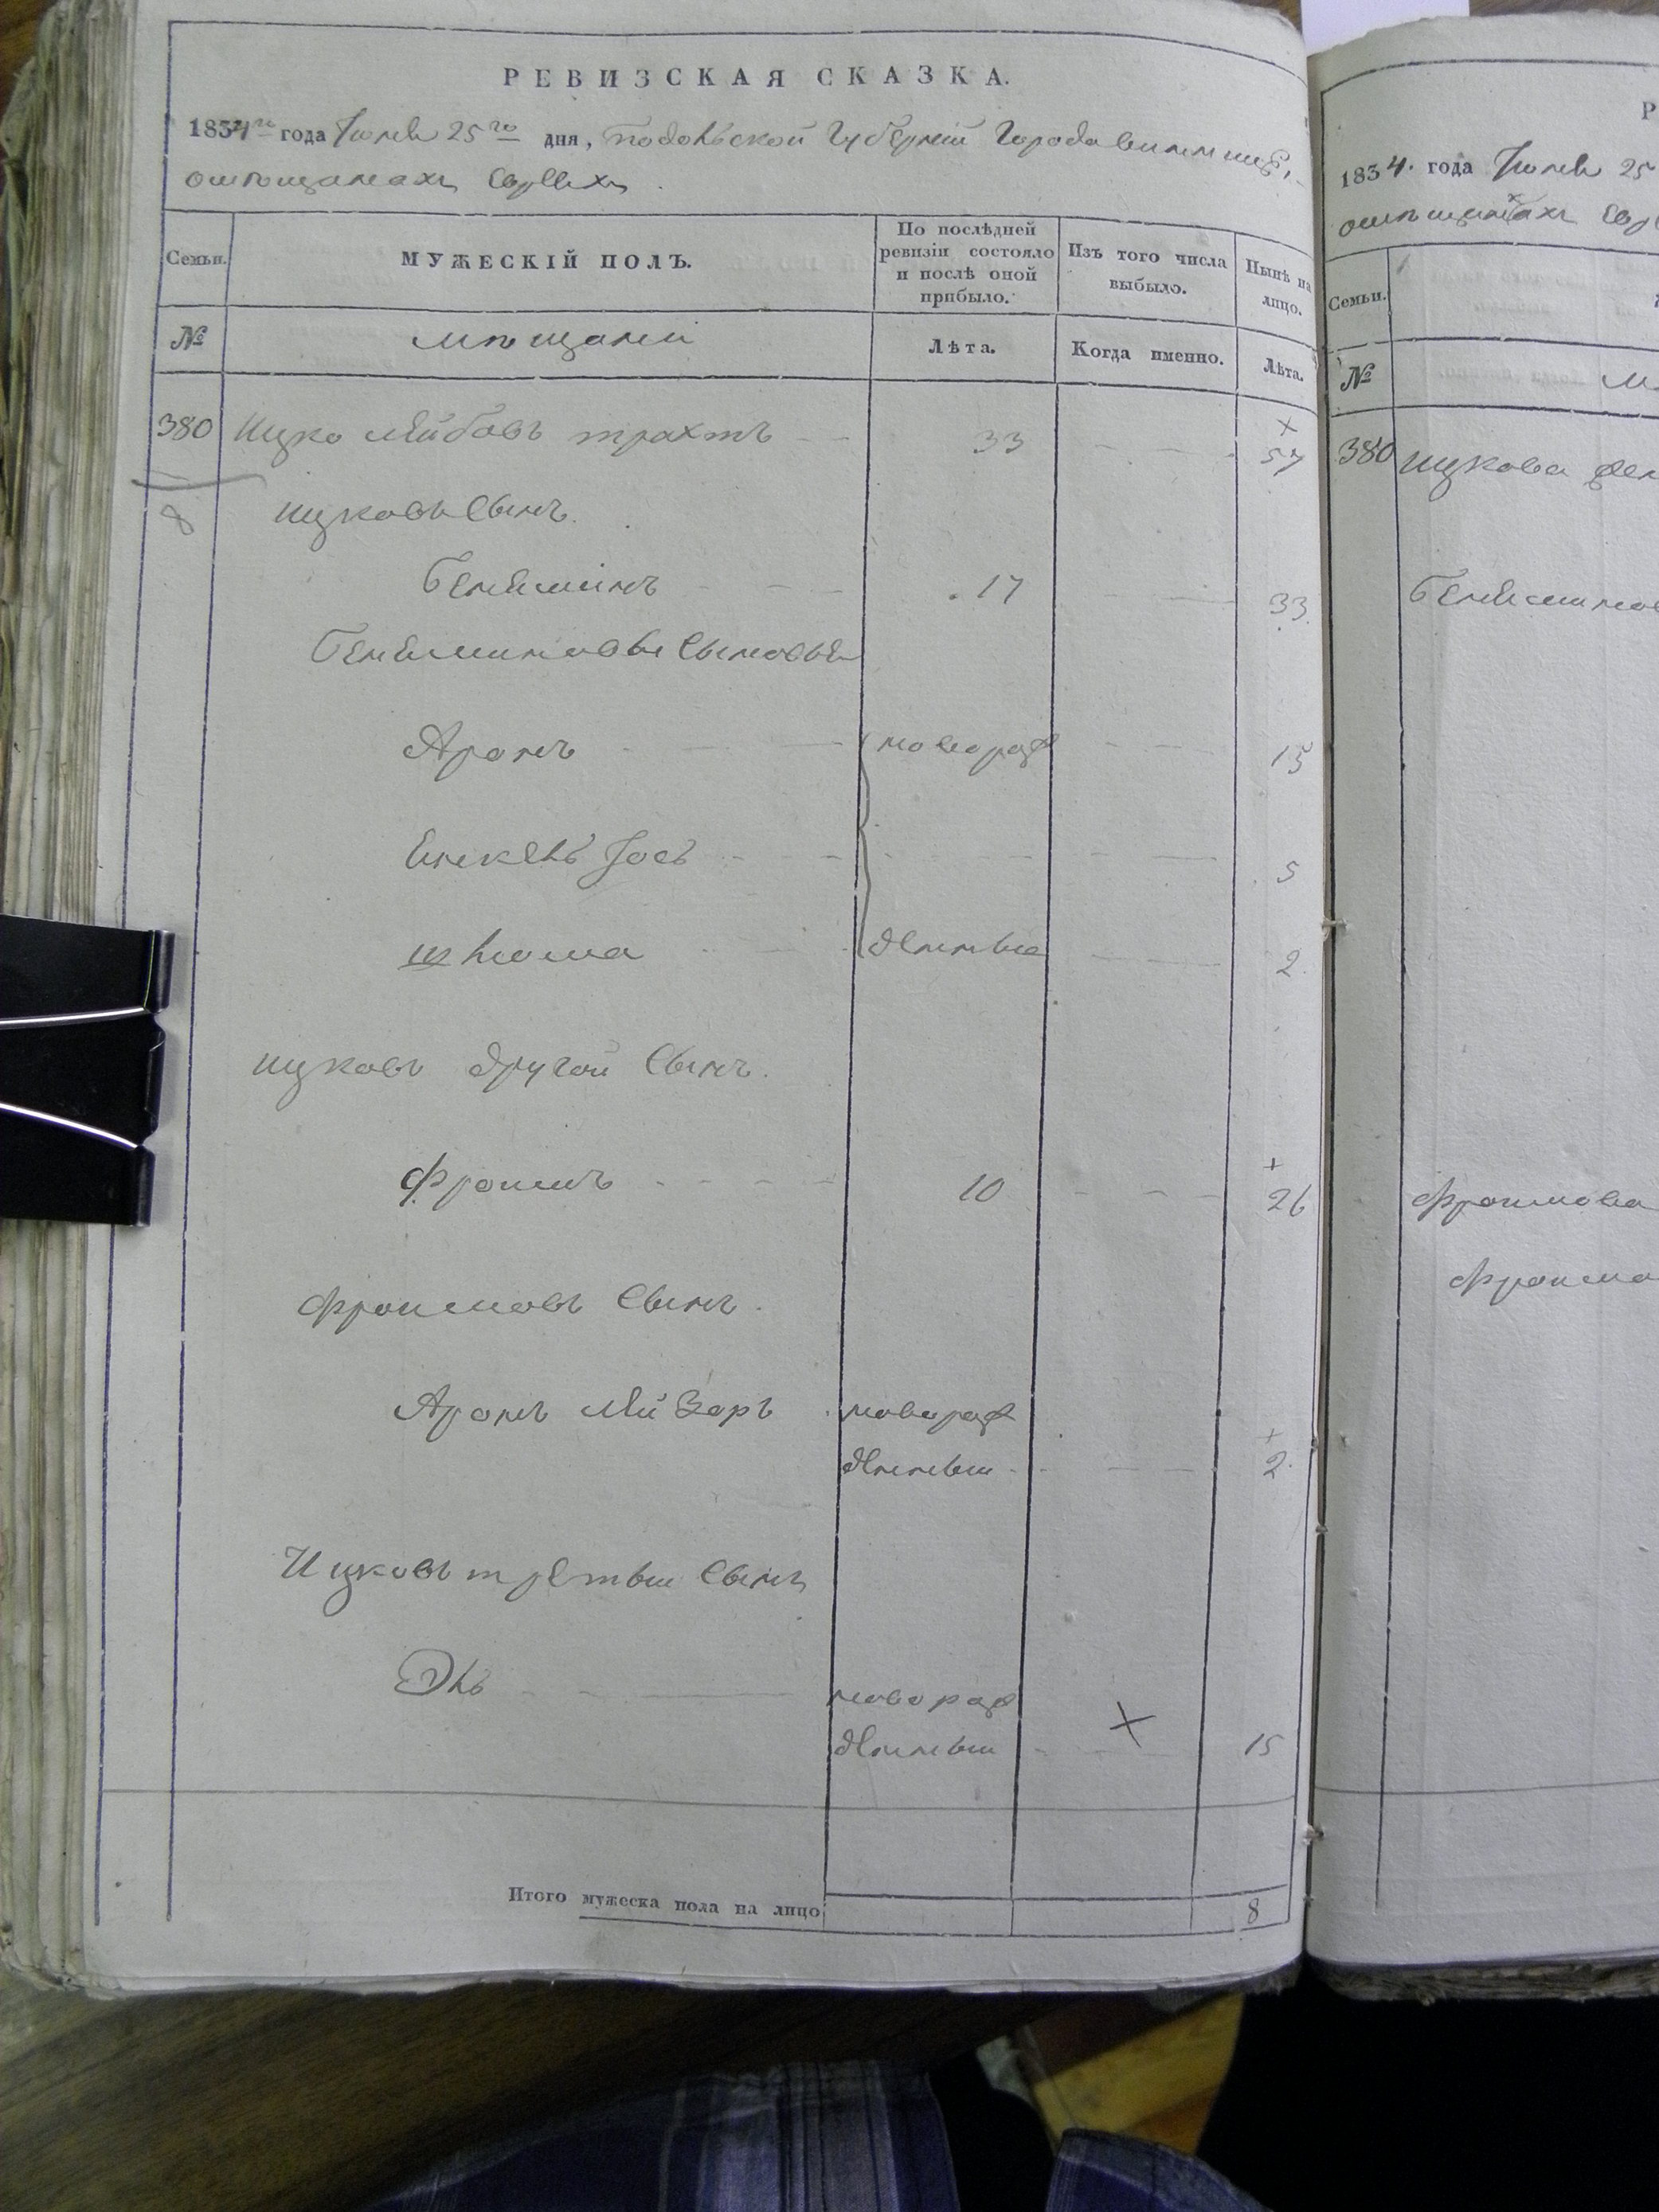 РЕВИЗСКАЯ СКАЗКА.
1834го года Июня 25го дня, Подольской Губернии Города Винницы,
омѣщанахъ Евреяхъ.
Семьи.
МУЖЕСКІЙ ПОЛЪ.
По послѣдней ревизіи состояло и послѣ оной прибыло.
Изъ того числа выбыло.
Нынѣ на лицо.
№
мѣщане
Лѣта.
Когда именно.
Лѣта.
380 Ицко Лейбовъ трахтъ 33 57
8 ицковъ Сынъ.
Бенеминъ 17 33
Бенеминовы Сыновья
Аронъ новорож 15
Енкель Іось 5
шлюма денные 2
ицковъ другой Сынъ.
Фроимъ 10 26
Фроимовъ Сынъ.
Аронъ Лейзоръ новорож
денный 2
Ицковъ третьи Сынъ
Эль новорож
денный 15
Итого мужеска пола на лицо 8
Р
1834. года Июня 25
омѣщанкахъ Евр
Семьи.
№ м
380 ицкова
Бенеминов
Фроимова
Фроимо